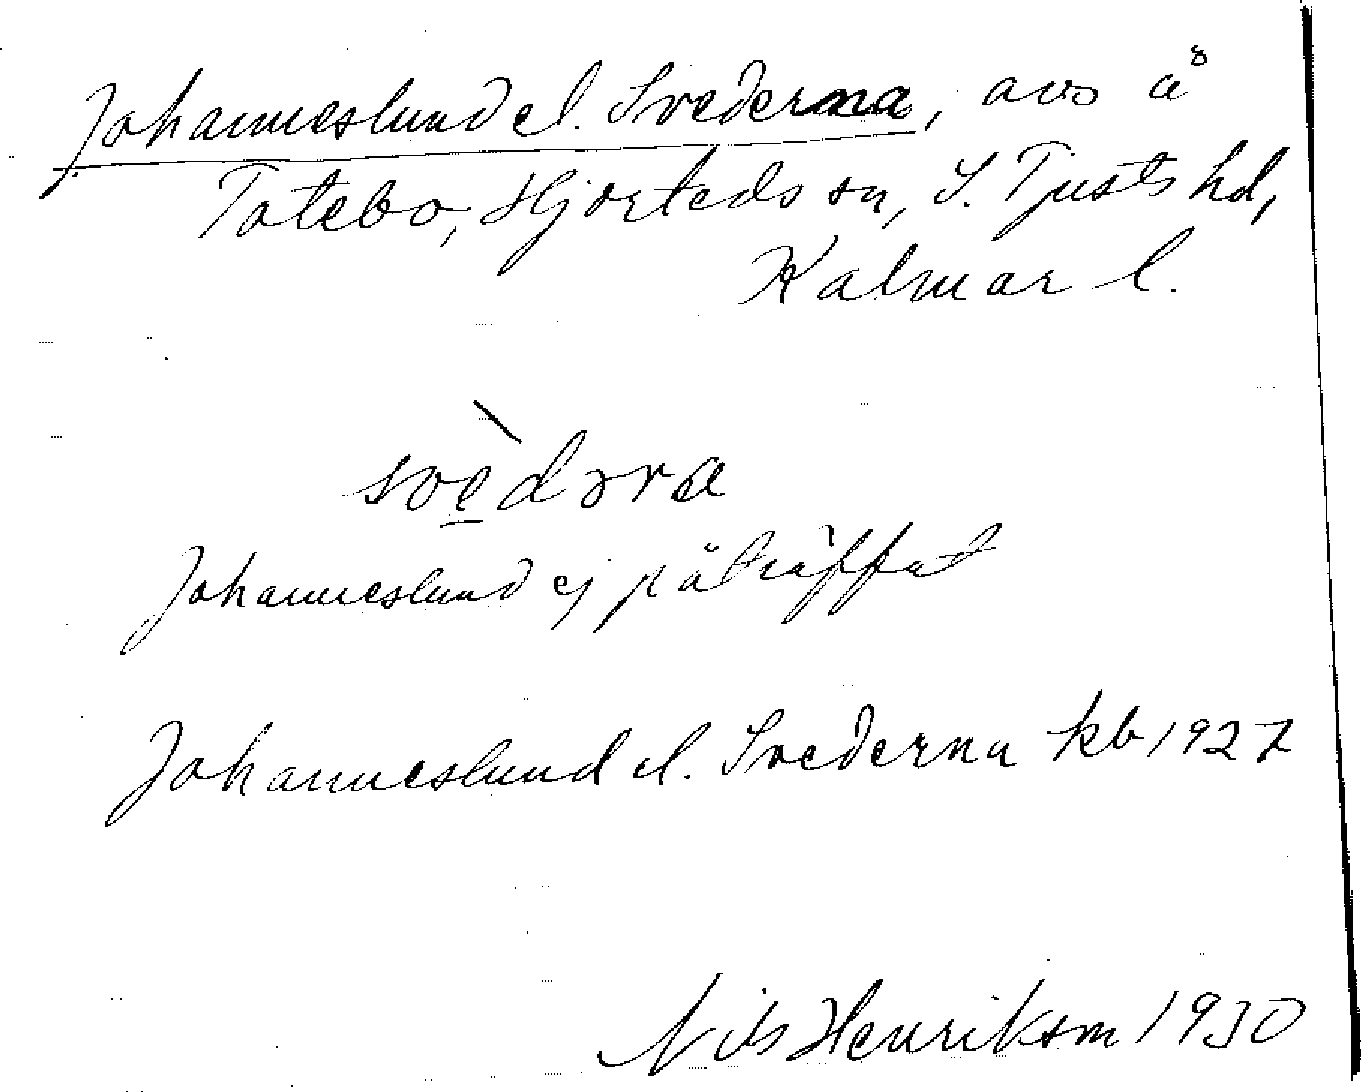 Johanneslund el. Svederna, avs å
Totebo, Hjorteds sn, S. Tjusts hd,
Kalmar l.
svèdəra
Johanneslund ej påträffat
Johanneslund el. Svederna kb 1927
Nils Henrikson 1930